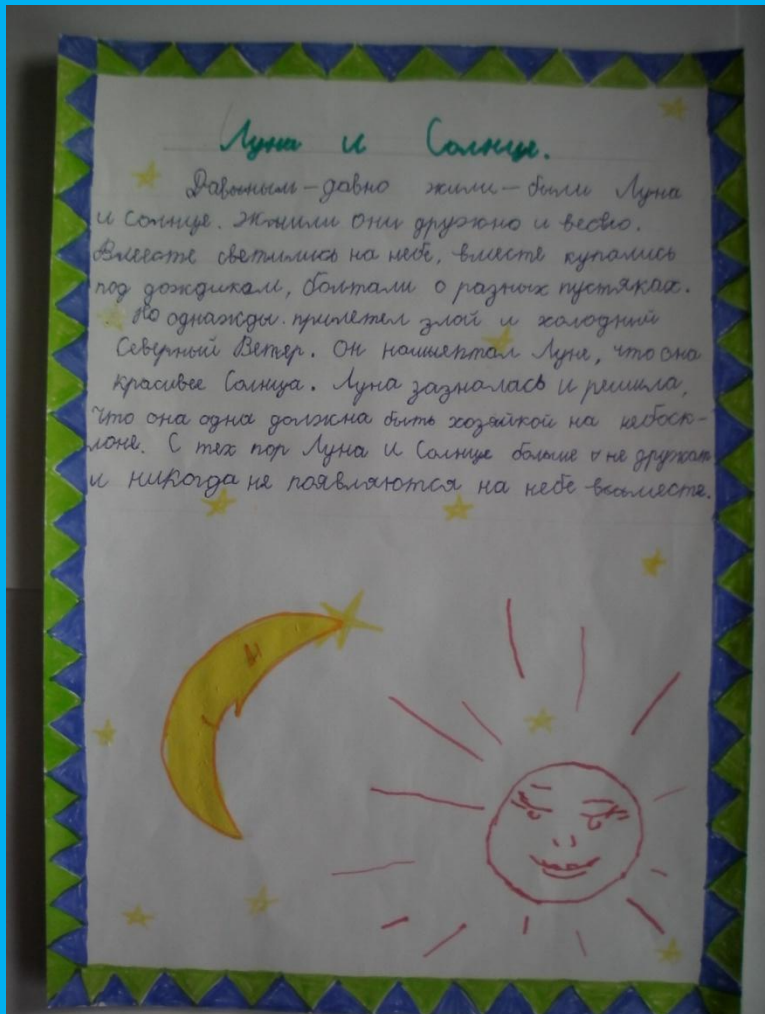 Луна и Солнце.
Давным-давно жили-были Луна
и солнце. Жили они дружно и весело.
Вместе светились на небе, вместе купались
под дождиком, болтали о разных пустяках.
Но однажды прилетел злой и холодный
Северный Ветер. Он нашептал Луне, что она
красивее Солнца. Луна зазналась и решила,
что она одна должна быть хозяйкой на небоск-
лоне. С тех пор Луна и Солнце больше не дружат
и никогда не появляются на небе вместе.